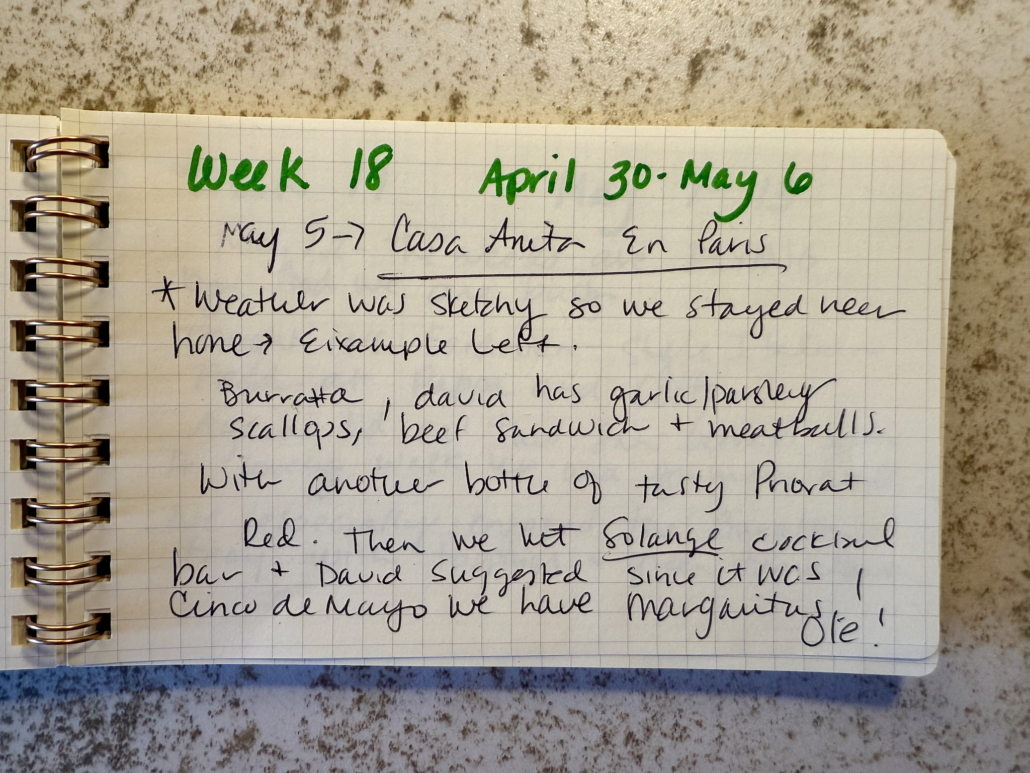 Week 18 April 30 - May 6
May 5 → Casa Anita En Paris
* Weather was sketchy so we stayed near
home → Eixample Left.
Burratta, david has garlic/parsley
scallops, beef sandwich + meatballs.
With another bottle of tasty Priorat
Red. Then we hit Solange cocktail
bar + David suggested since it was
Cinco de Mayo we have margaritas!
Ole!